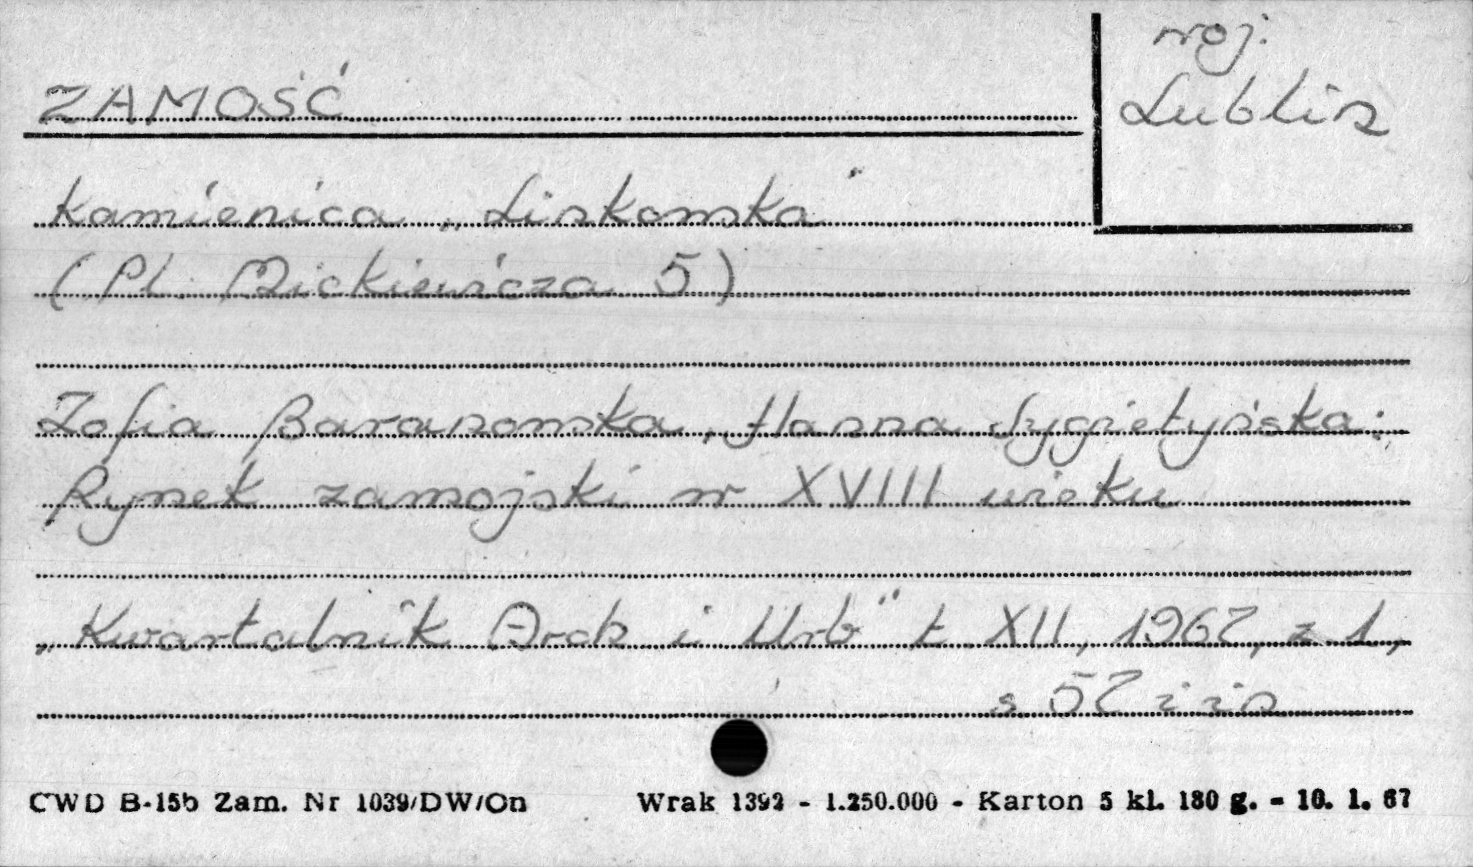 ZAMOŚĆ
woj.
Lublin
Kamienica „Linkowska"
(Pl. Mickiewicza 5)
Zofia Baranowska, Hanna Sygietyńska:
Rynek zamojski w XVIII wieku
„Kwartalnik Arch i Urb" t. XII, 1967, z. 1,
s 57 i in
CWD B-15b Zam. Nr 1039/DW/On Wrak 1392 - 1.250.000 - Karton 5 kl. 180 g. - 10. 1. 67